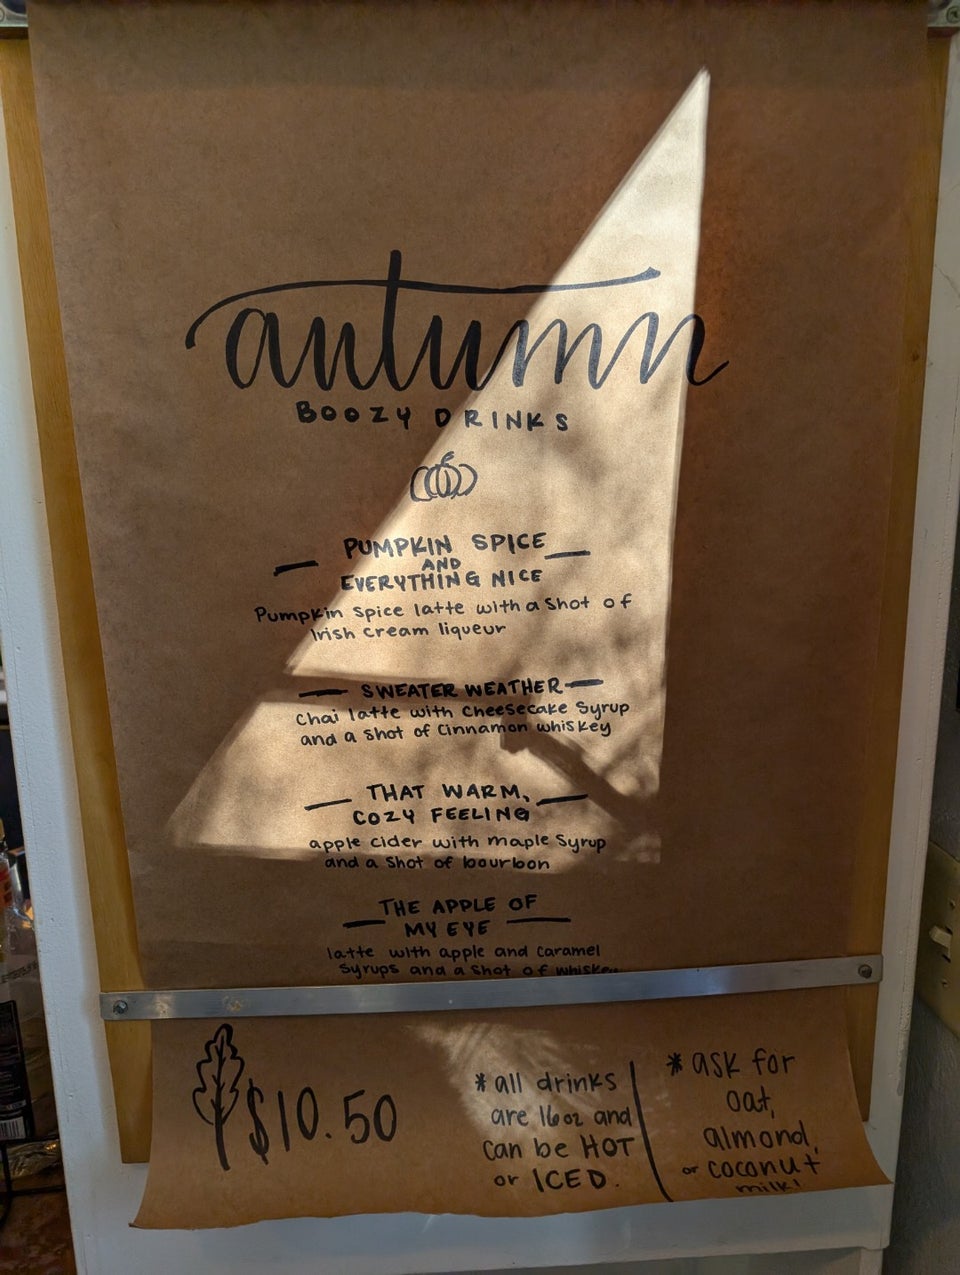 autumn
BOOZY DRINKS
PUMPKIN SPICE
AND
EVERYTHING NICE
Pumpkin Spice latte with a Shot of
Irish cream liqueur
SWEATER WEATHER
Chai latte with Cheesecake Syrup
and a shot of Cinnamon whiskey
THAT WARM,
COZY FEELING
apple cider with maple Syrup
and a Shot of bourbon
THE APPLE OF
MY EYE
latte with apple and Caramel
Syrups and a Shot of whiskey
$10.50
*all drinks
are 16oz and
can be HOT
or ICED.
*ask for
oat,
almond,
or coconut
milk!